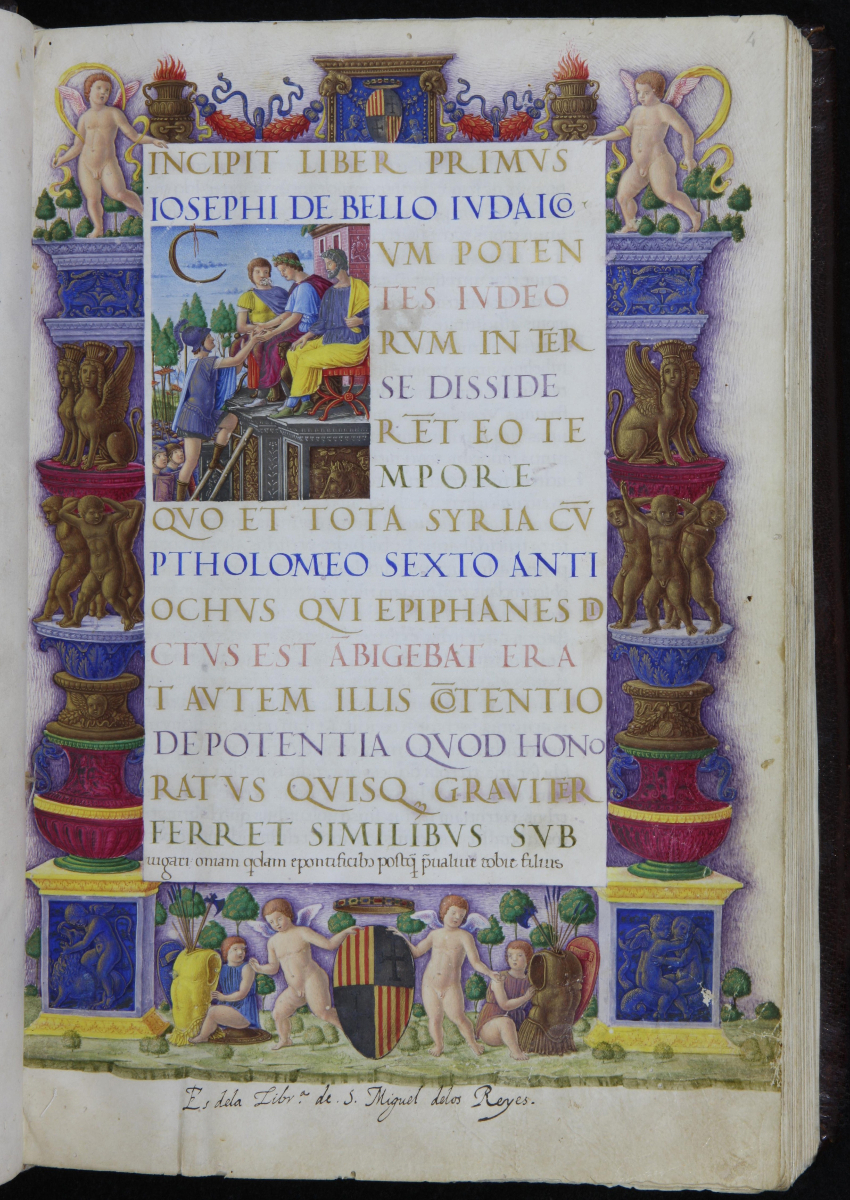 4
INCIPIT LIBER PRIMVS
IOSEPHI DE BELLO IVDAICO
C
VM POTEN
TES IVDEO
RVM IN TER
SE DISSIDE
RĒT EO TE
MPORE
QVO ET TOTA SYRIA CV̄
PTHOLOMEO SEXTO ANTI
OCHVS QVI EPIPHANES DI
CTVS EST ĀBIGEBAT ERA
T AVTEM ILLIS CŌTENTIO
DE POTENTIA QVOD HONO
RATVS QVISQꝫ GRAVITER
FERRET SIMILIBVS SVB
iugari oniam q̄dam e pontificibꝰ postq̄ p̄ualuit tobie filios
Es dela Libr.ª de S. Miguel delos Reyes.